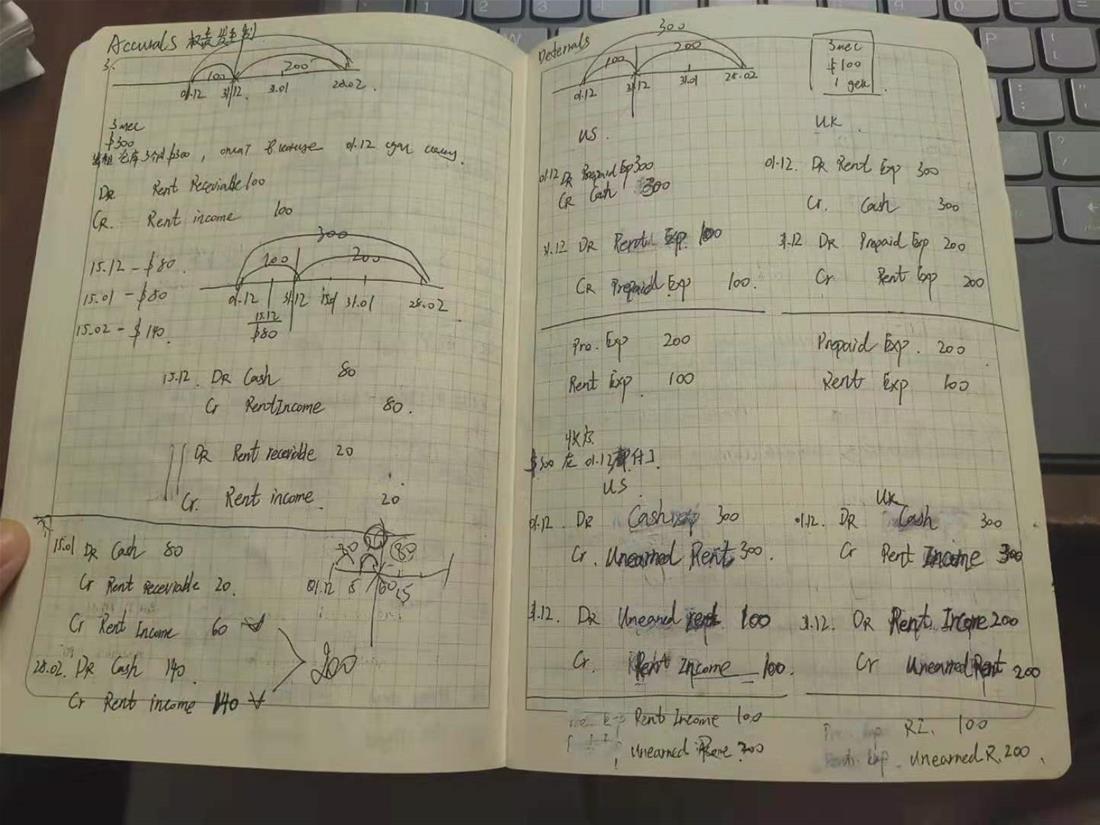 Accurals 权责发生制
3.
100 200
01.12 31.12 31.01 28.02
3 мес
$300
01.12
DR Rent Receivable 100
CR. Rent income 100
300
100 200
15.12 - $80
15.01 - $80
15.02 - $140
01.12 31.12 31.01 28.02
15.12
$80
15.12. DR Cash 80
Cr Rent Income 80.
DR Rent receivable 20
Cr. Rent income 20
15.01 DR Cash 80
Cr Rent receivable 20.
Cr Rent Income 60
28.02. DR Cash 140
Cr Rent income 140
200
01.12
Deferrals
300
100 200
01.12 31.12 31.01 28.02
3 мес
$100
1
US.
01.12 DR Prepaid Exp 300
CR Cash 300
31.12 DR Rent Exp. 100
CR Prepaid Exp 100.
Pre. Exp 200
Rent Exp 100
UK.
01.12. DR Rent Exp 300
Cr. Cash 300
31.12 DR Prepaid Exp 200
Cr Rent Exp 200
Prepaid Exp. 200
Rent Exp 100
收方
$300 在 01.12
US
01.12. DR Cash 300
Cr. Unearned Rent 300.
31.12. DR Unearned rent 100
Cr. Rent Income 100.
Rent Income 100
UK
01.12. DR Cash 300
Cr Rent Income 300
31.12. DR Rent Income 200
Cr Unearned Rent 200
R.I. 100
Unearned R. 200.